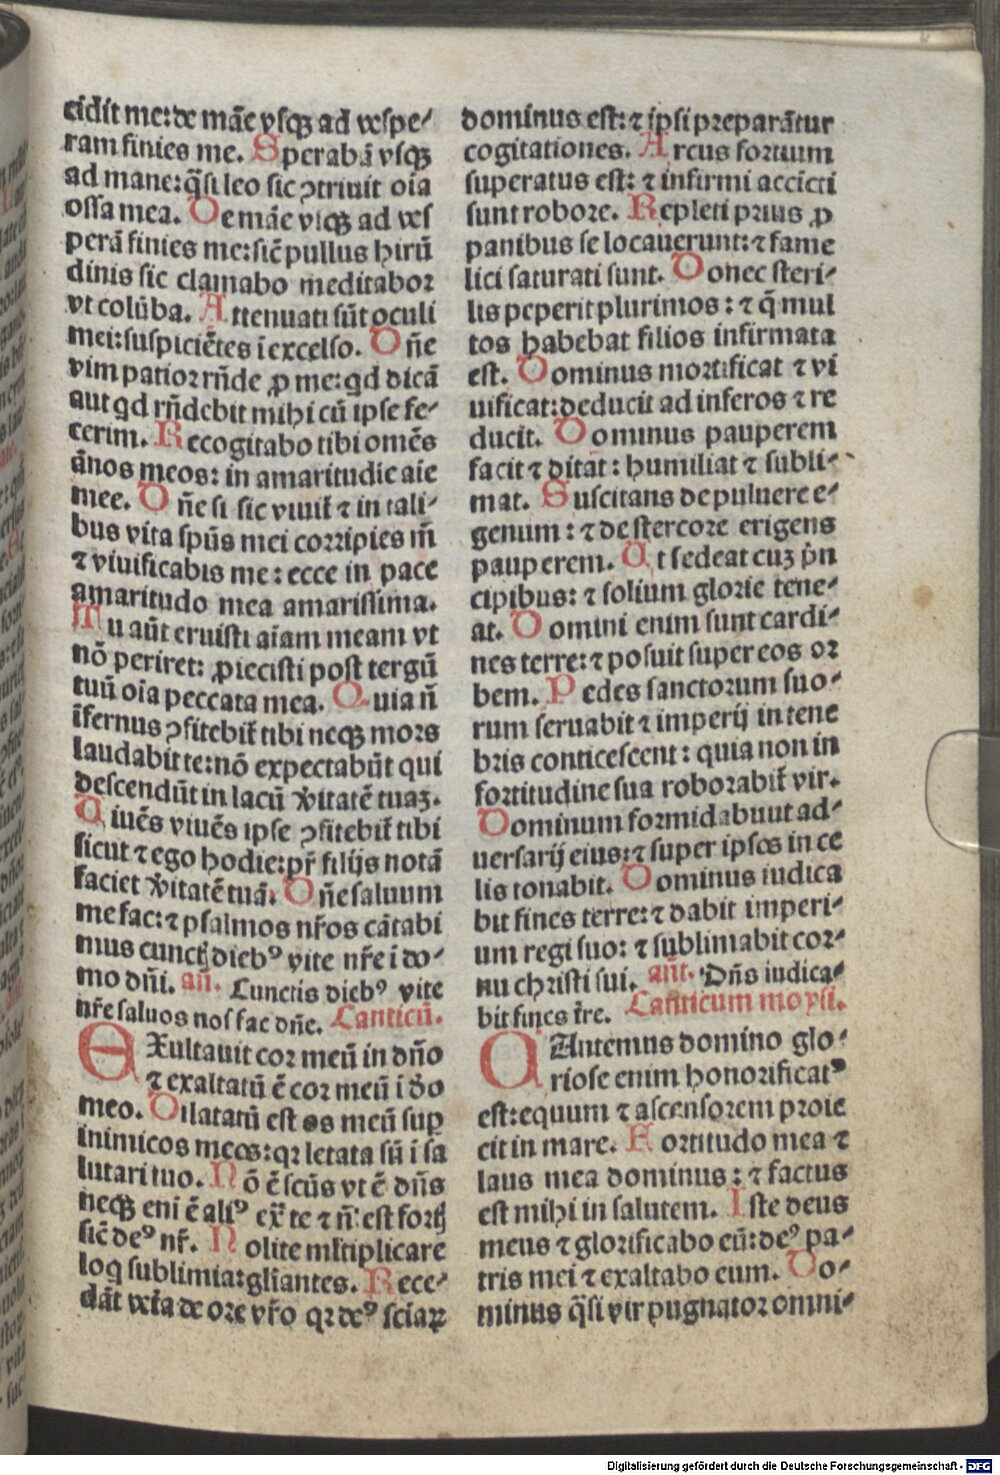 cidit me: de mãe vsqꝫ ad vespe-
ram finies me. Sperabã vsqꝫ
ad mane: q̃si leo sic ꝯtriuit oĩa
ossa mea. De mãe vsqꝫ ad ves
perã finies me: sic̃ pullus hirũ
dinis sic clamabo meditabor
vt colũba. Attenuati sũt oculi
mei: suspiciẽtes i excelso. Dñe
vim patior rñde ꝓ me: qd dicã
aut qd rñdebit mihi cũ ipse fe-
cerim. Recogitabo tibi omẽs
ãnos meos: in amaritudie aĩe
mee. Dñe si sic viuit̃ ⁊ in tali-
bus vita spũs mei corripies m̃
⁊ viuificabis me: ecce in pace
amaritudo mea amarissima.
Tu aũt eruisti aĩam meam vt
nõ periret: ꝓiecisti post tergũ
tuũ oĩa peccata mea. Quia ñ
ĩfernus ꝯfitebit̃ tibi neqꝫ mors
laudabit te: nõ expectabũt qui
descendũt in lacũ v̾itatẽ tuaꝫ.
Viuẽs viuẽs ipse ꝯfitebit̃ tibi
sicut ⁊ ego hodie: pr̃ filijs notã
faciet v̾itatẽ tuã. Dñe saluum
me fac: ⁊ psalmos nr̃os cãtabi
mus cunctꝭ diebꝰ vite nr̃e i do-
mo dñi. añ. Cunctis diebꝰ vite
nr̃e saluos nos fac dñe. Canticũ.
EXultauit cor meũ in dño
⁊ exaltatũ ẽ cor meũ i d̃o
meo. Dilatatũ est os meũ suꝑ
inimicos meos: qꝛ letata sũ i sa
lutari tuo. Nõ ẽ scũs vt ẽ dñs
neqꝫ eni ẽ aliꝰ ex̃ te ⁊ ñ est fortꝭ
sic̃ deꝰ nr̃. Nolite ml̃tiplicare
loq̃ sublimia: gl̃iantes. Rece-
dãt vet̃a de ore vr̃o qꝛ deꝰ sciaꝝ
dominus est: ⁊ ipsi preparãtur
cogitationes. Arcus fortium
superatus est: ⁊ infirmi accicti
sunt robore. Repleti prius ꝓ
panibus se locauerunt: ⁊ fame
lici saturati sunt. Donec steri-
lis peperit plurimos: ⁊ q̃ mul
tos habebat filios infirmata
est. Dominus mortificat ⁊ vi
uificat: deducit ad inferos ⁊ re
ducit. Dominus pauperem
facit ⁊ ditat: humiliat ⁊ subli-
mat. Suscitans de puluere e-
genum: ⁊ de stercore erigens
pauperem. Ut sedeat cuꝫ p̃n
cipibus: ⁊ solium glorie tene-
at. Domini enim sunt cardi-
nes terre: ⁊ posuit super eos or
bem. Pedes sanctorum suo-
rum seruabit ⁊ imperij in tene
bris conticescent: quia non in
fortitudine sua roborabit̃ vir.
Dominum formidabuut ad-
uersarij eius: ⁊ super ipsos in ce
lis tonabit. Dominus iudica
bit fines terre: ⁊ dabit imperi-
um regi suo: ⁊ sublimabit cor-
nu christi sui. añt. Dñs iudica-
bit fines t̃re. Canticum moysi.
CAntemus domino glo-
riose enim honorificatꝰ
est: equum ⁊ ascensorem proie
cit in mare. Fortitudo mea ⁊
laus mea dominus: ⁊ factus
est mihi in salutem. Iste deus
meus ⁊ glorificabo eũ: deꝰ pa-
tris mei ⁊ exaltabo eum. Do-
minus q̃si vir pugnator omni-
Digitalisierung gefördert durch die Deutsche Forschungsgemeinschaft - DFG